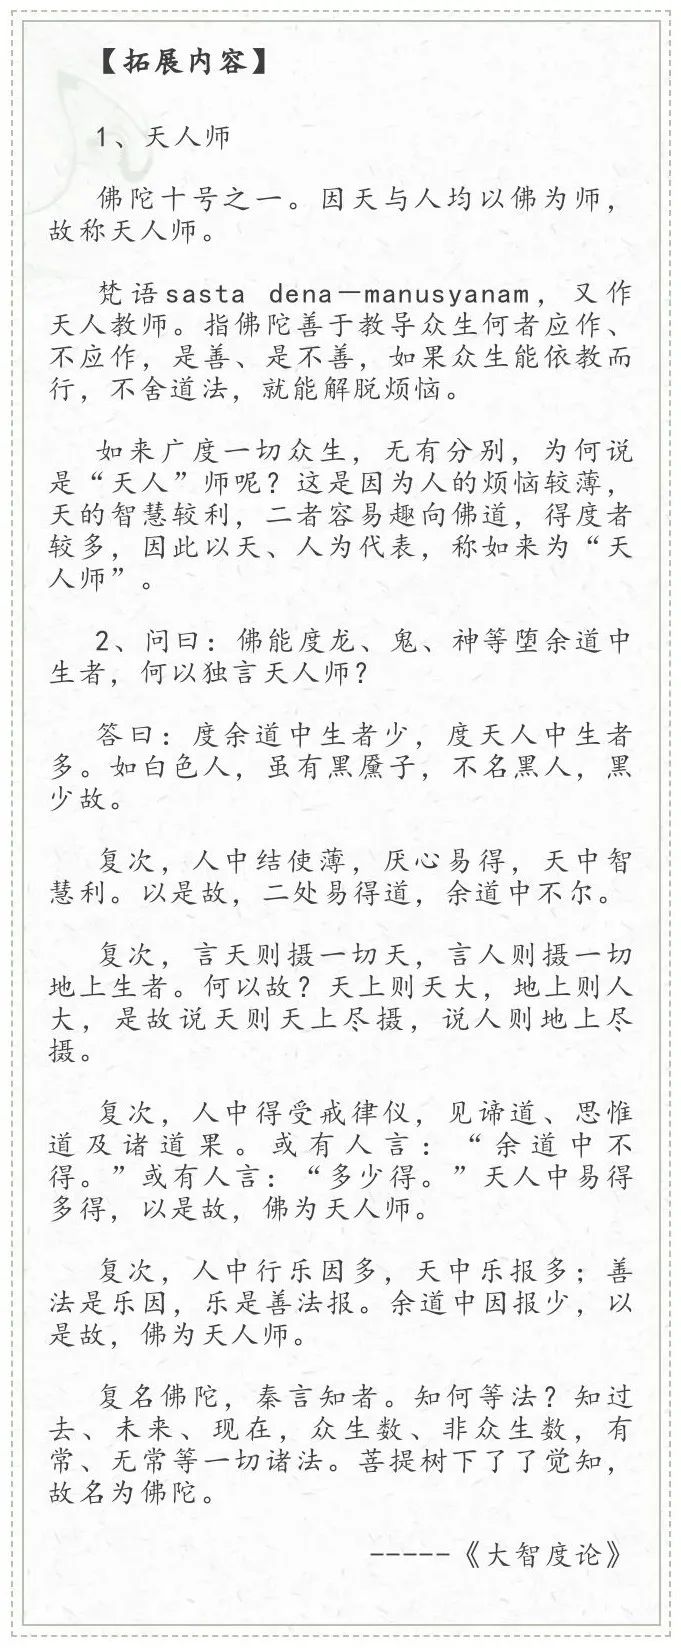 【拓展内容】
1、天人师
佛陀十号之一。因天与人均以佛为师，
故称天人师。
梵语sasta dena－manusyanam，又作
天人教师。指佛陀善于教导众生何者应作、
不应作，是善、是不善，如果众生能依教而
行，不舍道法，就能解脱烦恼。
如来广度一切众生，无有分别，为何说
是“天人”师呢？这是因为人的烦恼较薄，
天的智慧较利，二者容易趣向佛道，得度者
较多，因此以天、人为代表，称如来为“天
人师”。
2、问曰：佛能度龙、鬼、神等堕余道中
生者，何以独言天人师？
答曰：度余道中生者少，度天人中生者
多。如白色人，虽有黑黡子，不名黑人，黑
少故。
复次，人中结使薄，厌心易得，天中智
慧利。以是故，二处易得道，余道中不尔。
复次，言天则摄一切天，言人则摄一切
地上生者。何以故？天上则天大，地上则人
大，是故说天则天上尽摄，说人则地上尽
摄。
复次，人中得受戒律仪，见谛道、思惟
道及诸道果。或有人言：“余道中不
得。”或有人言：“多少得。”天人中易得
多得，以是故，佛为天人师。
复次，人中行乐因多，天中乐报多；善
法是乐因，乐是善法报。余道中因报少，以
是故，佛为天人师。
复名佛陀，秦言知者。知何等法？知过
去、未来、现在，众生数、非众生数，有
常、无常等一切诸法。菩提树下了了觉知，
故名为佛陀。
-----《大智度论》